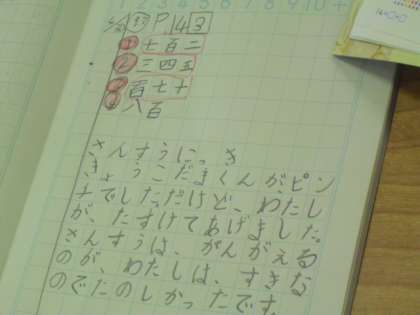 1 2 3 4 5 6 7 8 9 10 +
P.143
① 七百二
② 三四五
③ 百七十
④ 八百
さんすうにっき
きょうこだまくんがピン
チでした。だけど、わたし
が、たすけてあげました。
さんすうは、がんがえる
のが、わたしは、すきな
のでたのしかったです。